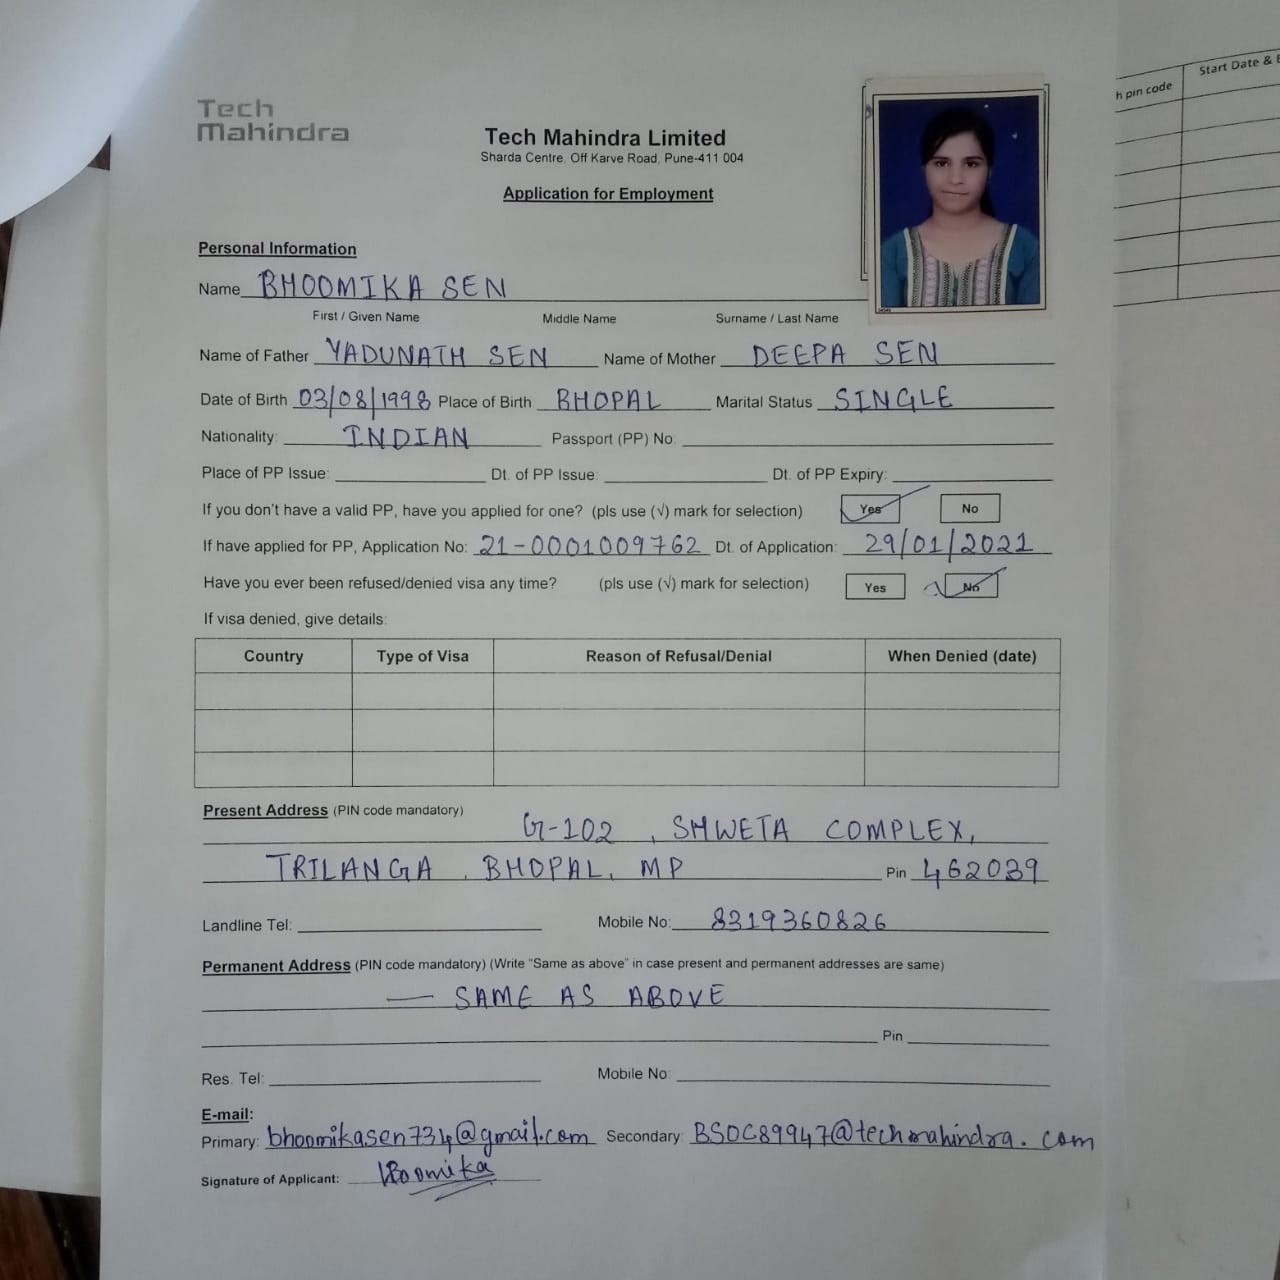 Tech
Mahindra
Tech Mahindra Limited
Sharda Centre, Off Karve Road, Pune-411 004
Application for Employment
h pin code Start Date & E
Personal Information
Name BHOOMIKA SEN
First / Given Name Middle Name Surname / Last Name
Name of Father YADUNATH SEN Name of Mother DEEPA SEN
Date of Birth 03/08/1998 Place of Birth BHOPAL Marital Status SINGLE
Nationality: INDIAN Passport (PP) No:
Place of PP Issue: Dt. of PP Issue: Dt. of PP Expiry:
If you don't have a valid PP, have you applied for one? (pls use (√) mark for selection) Yes No
If have applied for PP, Application No: 21-0001009762 Dt. of Application: 29/01/2021
Have you ever been refused/denied visa any time? (pls use (√) mark for selection) Yes No
If visa denied, give details:
Country Type of Visa Reason of Refusal/Denial When Denied (date)
Present Address (PIN code mandatory)
G-102, SHWETA COMPLEX,
TRILANGA, BHOPAL, MP Pin 462039
Landline Tel: Mobile No: 8319360826
Permanent Address (PIN code mandatory) (Write "Same as above" in case present and permanent addresses are same)
— SAME AS ABOVE
Pin
Res. Tel: Mobile No:
E-mail:
Primary: bhoomikasen734@gmail.com Secondary: BS0C89947@techmahindra.com
Signature of Applicant: Bhoomika